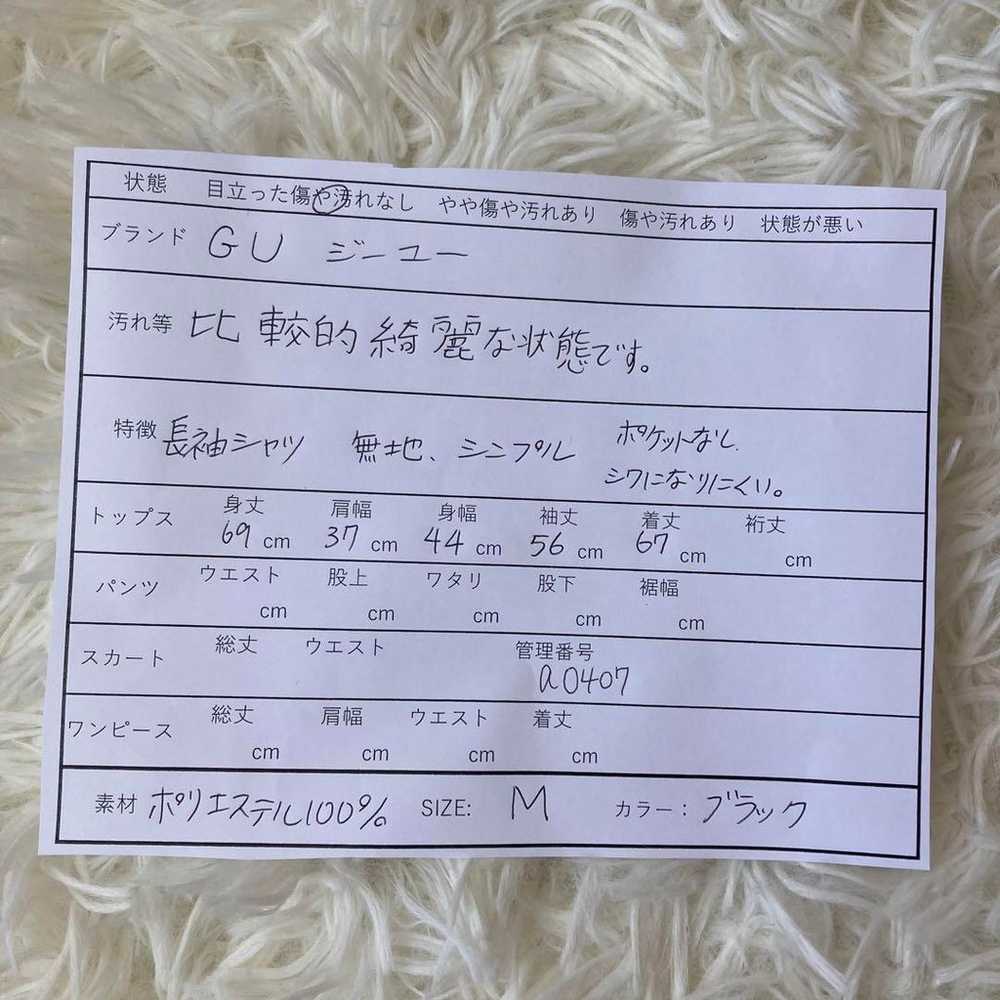 状態 目立った傷や汚れなし やや傷や汚れあり 傷や汚れあり 状態が悪い
ブランド GU ジーユー
汚れ等 比較的綺麗な状態です。
特徴 長袖シャツ 無地、シンプル ポケットなし.
シワになりにくい。
トップス 身丈 肩幅 身幅 袖丈 着丈 裄丈
69 cm 37 cm 44 cm 56 cm 67 cm cm
パンツ ウエスト 股上 ワタリ 股下 裾幅
cm cm cm cm cm
スカート 総丈 ウエスト 管理番号
a0407
ワンピース 総丈 肩幅 ウエスト 着丈
cm cm cm cm
素材 ポリエステル100% SIZE: M カラー：ブラック